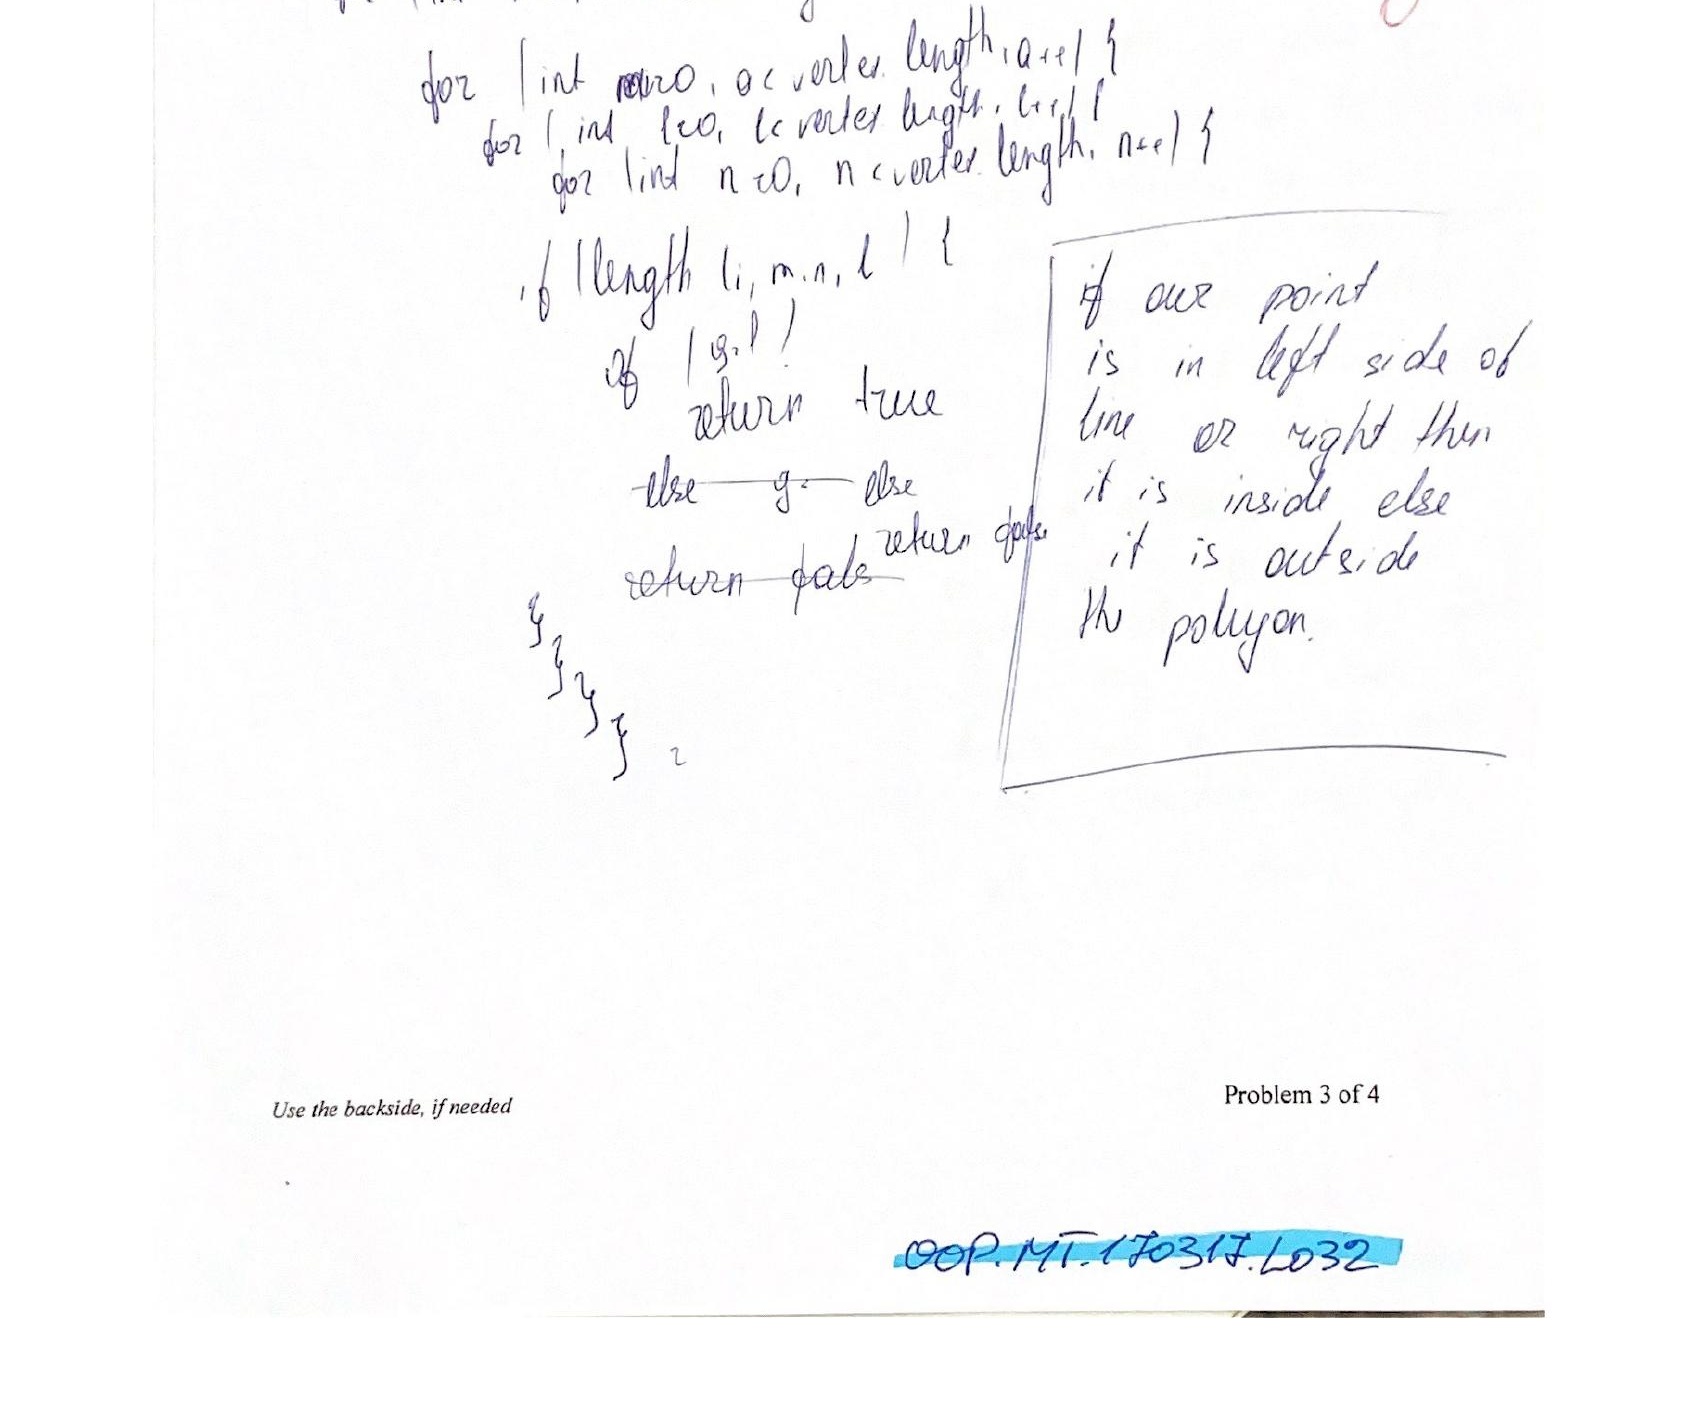 for (int m=0, a< vertex.length, a++) {
for ( int l=0, l< vertex length, l++) {
for (int n=0, n< vertex.length, n++) {
if (length (i, m.n, l ) {
if
return true
else g. else
return false
return fals
}
}
}
}
if our point
is in left side of
line or right then
it is inside else
it is outside
the polygon.
Use the backside, if needed
Problem 3 of 4
OOP.MT.170317.L032